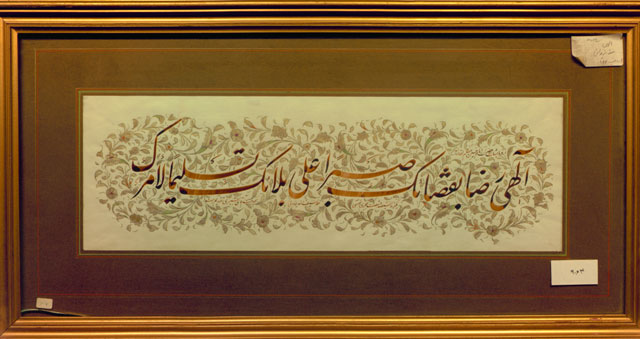 آلهی رضا بقضائک صبرا علی بلائک تسلیما لامرک
۹۰۳